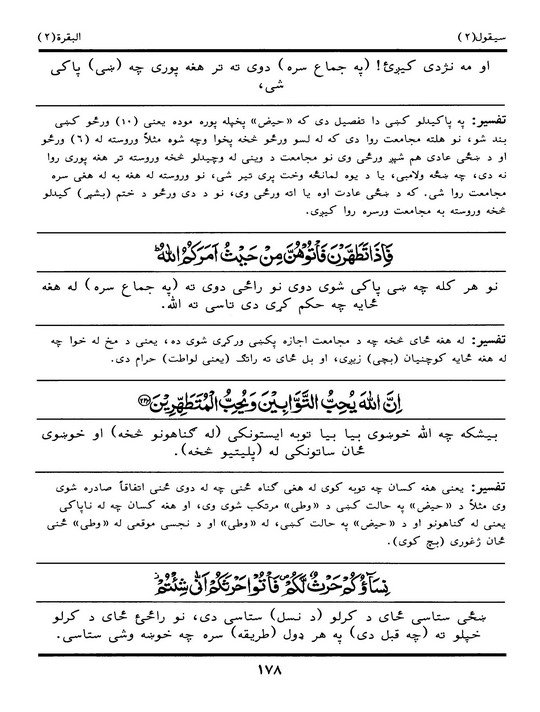 سيقول(٢)
البقرة(٢)
او مه نژدې کيږئ! (په جماع سره) دوی ته تر هغه پورې چه (ښې) پاکې
شي،
تفسير: په پاکېدلو کښې دا تفصيل دی که «حيض» پخپله پوره موده يعنې (۱۰) ورځو کښې
بند شو، نو هلته مجامعت روا دی که له لسو ورځو څخه پخوا وچه شوه مثلاً وروسته له (٦) ورځو
او د ښځې عادي هم شپږ ورځې وي نو مجامعت د وينې له وچېدلو څخه وروسته تر هغه پورې روا
نه دی، چه ښځه ولامبي، يا د يوه لمانځه وخت پرې تير شي، نو وروسته له هغه به له هغې سره
مجامعت روا شي. که د ښځې عادت اوه يا اته ورځې وي، نو د دې ورځو د ختم (بشپړ) کېدلو
څخه وروسته به مجامعت ورسره روا کيږي.
فَاِذَا تَطَهَّرْنَ فَاْتُوْهُنَّ مِنْ حَيْثُ اَمَرَكُمُ اللّٰهُ ؕ
نو هر کله چه ښې پاکې شوې دوی نو راځئ دوی ته (په جماع سره) له هغه
ځايه چه حکم کړی دی تاسې ته الله.
تفسير: له هغه ځای څخه چه د مجامعت اجازه پکښې ورکړې شوې ده، يعنې د مخ له خوا چه
له هغه ځايه کوچنيان (بچي) زيږي، او بل ځای ته راتګ (يعنې لواطت) حرام دی.
اِنَّ اللّٰهَ يُحِبُّ التَّوَّابِيْنَ وَيُحِبُّ الْمُتَطَهِّرِيْنَ ﴿۲۲۲﴾
بيشکه چه الله خوښوي بيا بيا توبه ايستونکي (له ګناهونو څخه) او خوښوي
ځان ساتونکي له (پليتيو څخه).
تفسير: يعنې هغه کسان چه توبه کوي له هغې ګناه ځنې چه له دوی ځنې اتفاقاً صادره شوې
وي مثلاً د «حيض» په حالت کښې د «وطي» مرتکب شوي وي، او هغه کسان چه له ناپاکۍ
يعنې له ګناهونو او د «حيض» په حالت کښې، له «وطي» او د نجسې موقعې له «وطي» ځنې
ځان ژغوري (بچ کوي).
نِسَآؤُكُمْ حَرْثٌ لَّكُمْ ۪ فَاْتُوْا حَرْثَكُمْ اَنّٰى شِئْتُمْ ؗ
ښځې ستاسې ځای د کرلو (د نسل) ستاسې دی، نو راځئ ځای د کرلو
خپلو ته (چه قبل دی) په هر ډول (طريقه) سره چه خوښه وشي ستاسې.
١٧٨